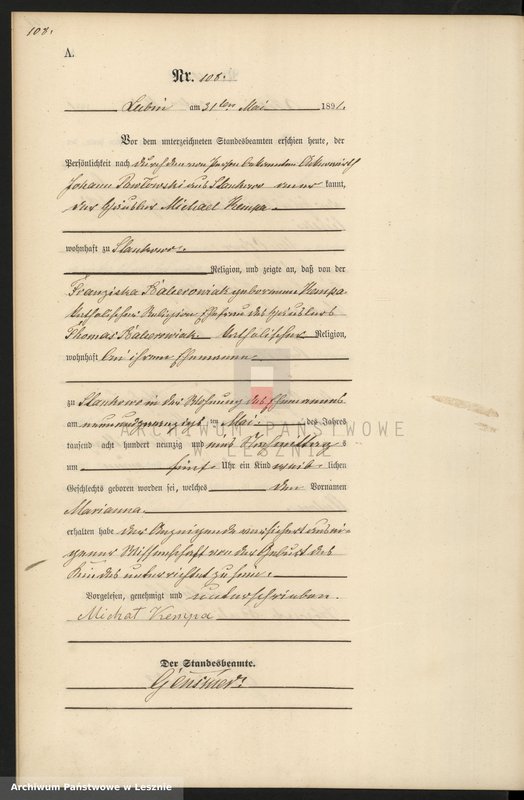 108.
A.
Nr. 108.
Lubin am 31ten Mai 1891.
Vor dem unterzeichneten Standesbeamten erschien heute, der
Persönlichkeit nach durch den von Person bekannten Ackerwirth
Johann Pawłowski aus Stankowo aner kannt,
der Häusler Michael Kempa
wohnhaft zu Stankowo
Religion, und zeigte an, daß von der
Franziska Balcerowiak geborenen Kempa
katholischer Religion, Ehefrau des Häuslers
Thomas Balcerowiak katholischer Religion,
wohnhaft bei ihrem Ehemanne
zu Stankowo in der Wohnung des Ehemannes
am neunundzwanzigsten Mai des Jahres
tausend acht hundert neunzig und eins Nachmittags
um fünf Uhr ein Kind weib lichen
Geschlechts geboren worden sei, welches den Vornamen
Marianna
erhalten habe der Anzeigende versichert aus ei-
gener Wissenschaft von der Geburt des
Kindes unterrichtet zu sein.
Vorgelesen, genehmigt und unterschrieben.
Michał Kempa
Der Standesbeamte.
ARCHIWUM PAŃSTWOWE
W LESZNIE
Archiwum Państwowe w Lesznie